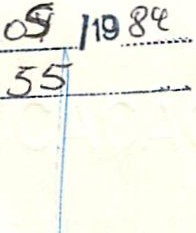 05 /1984
55